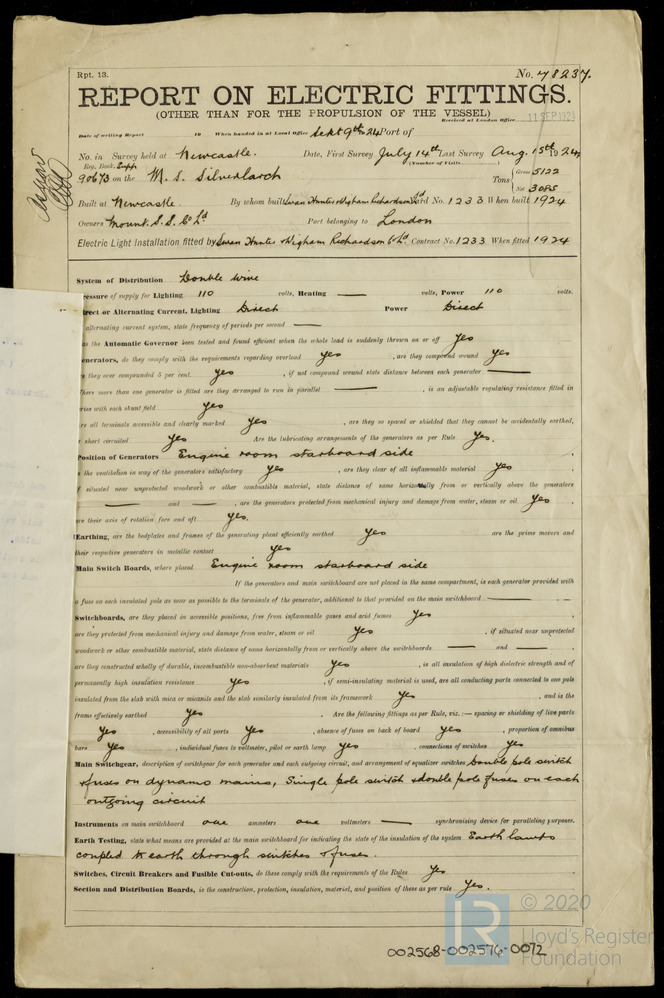 Rpt. 13.
No. 78237.
REPORT ON ELECTRIC FITTINGS.
(OTHER THAN FOR THE PROPULSION OF THE VESSEL)
Received at London Office 11 SEP 1924
Date of writing Report 19 When handed in at Local Office Sept 9th 24 Port of
No. in Survey held at Newcastle. Date, First Survey July 14th Last Survey Aug. 15th 1924
Reg. Book. Supp (Number of Visits
90673 on the M. S. Silverlarch Tons Gross 5122
Net 3085
Built at Newcastle. By whom built Swan Hunter & Wigham Richardson Ld Yard No. 1233 When built 1924
Owners Mount. S. S. Co Ld Port belonging to London
Electric Light Installation fitted by Swan Hunter & Wigham Richardson Co Ld Contract No. 1233 When fitted 1924
System of Distribution Double wire
ressure of supply for Lighting 110 volts, Heating — volts, Power 110 volts.
irect or Alternating Current, Lighting Direct Power Direct
alternating current system, state frequency of periods per second —
as the Automatic Governor been tested and found efficient when the whole load is suddenly thrown on or off Yes
enerators, do they comply with the requirements regarding overload yes , are they compound wound yes
they over compounded 5 per cent. yes , if not compound wound state distance between each generator —
here more than one generator is fitted are they arranged to run in parallel — , is an adjustable regulating resistance fitted in
ries with each shunt field yes
re all terminals accessible and clearly marked yes , are they so spaced or shielded that they cannot be accidentally earthed,
r short circuited yes Are the lubricating arrangements of the generators as per Rule yes.
Position of Generators Engine room starboard side
s the ventilation in way of the generators satisfactory yes , are they clear of all inflammable material yes
f situated near unprotected woodwork or other combustible material, state distance of same horizontally from or vertically above the generators
— and — , are the generators protected from mechanical injury and damage from water, steam or oil yes .
are their axis of rotation fore and aft yes.
Earthing, are the bedplates and frames of the generating plant efficiently earthed yes are the prime movers and
their respective generators in metallic contact yes
Main Switch Boards, where placed Engine room starboard side
If the generators and main switchboard are not placed in the same compartment, is each generator provided with
a fuse on each insulated pole as near as possible to the terminals of the generator, additional to that provided on the main switchboard —
Switchboards, are they placed in accessible positions, free from inflammable gases and acid fumes yes
are they protected from mechanical injury and damage from water, steam or oil yes , if situated near unprotected
woodwork or other combustible material, state distance of same horizontally from or vertically above the switchboards — and — ,
are they constructed wholly of durable, incombustible non-absorbent materials yes , is all insulation of high dielectric strength and of
permanently high insulation resistance yes , if semi-insulating material is used, are all conducting parts connected to one pole
insulated from the slab with mica or micanite and the slab similarly insulated from its framework yes , and is the
frame effectively earthed yes . Are the following fittings as per Rule, viz.:— spacing or shielding of live parts
yes , accessibility of all parts yes , absence of fuses on back of board yes , proportion of omnibus
bars yes , individual fuses to voltmeter, pilot or earth lamp yes , connections of switches yes
Main Switchgear, description of switchgear for each generator and each outgoing circuit, and arrangement of equalizer switches Double pole switch
& fuses on dynamo mains, Single pole switch & double pole fuses on each
outgoing circuit
Instruments on main switchboard one ammeters one voltmeters — synchronising device for paralleling purposes.
Earth Testing, state what means are provided at the main switchboard for indicating the state of the insulation of the system Earth lamps
coupled to earth through switches & fuses.
Switches, Circuit Breakers and Fusible Cut-outs, do these comply with the requirements of the Rules yes
Section and Distribution Boards, is the construction, protection, insulation, material, and position of these as per rule yes.
002568-002576-0072
© 2020
Lloyd's Register
Foundation